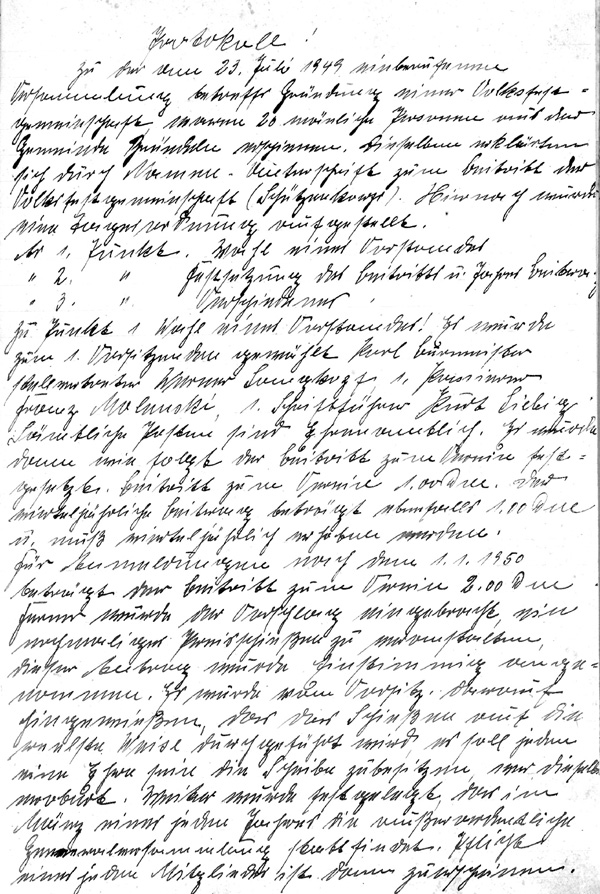 Protokoll!
zu der am 23. Juli 1949 einberufenen
Versammlung betreffs Gründung einer Volksfest-
gemeinschaft waren 20 mänliche Personen aus der
Gemeinde erschienen. Dieselben erklärten
sich durch Namen-Unterschrift zum Beitritt der
Volksfestgemeinschaft (Schützenkorps). Hiernach wurde
eine Tagesordnung aufgestellt.
Nr 1. Punkt. Wahl eines Vorstandes
" 2. " Festsetzung des Beitritts u. Jahres Beitrag
" 3. " Verschiedenes
Zu Punkt 1 Wahl eines Vorstandes! Es wurde
zum 1. Vorsitzenden gewählt Karl Burmeister
Stellvertreter Werner 1. Kassierer
Franz Malenski, 1. Schriftführer Kurt Liebig
Sämtliche Posten sind Ehrenamtlich. Es wurde
dann wie folgt der Beitritt zum Verein fest-
gesetzt. Beitritt zum Verein 1.00 Dm. Der
vierteljährliche Beitrag beträgt ebenfalls 1.00 Dm
u. muß vierteljährlich erhoben werden.
Für Anmeldungen nach dem 1.1.1950
beträgt der Beitritt zum Verein 2.00 Dm
Ferner wurde der Vorschlag eingebracht, ein
nochmaliges Preisschießen zu veranstalten,
dieser Antrag wurde Einstimmig ange-
nommen. Es wurde vom Vorsitz. darauf
hingewießen, das das Schießen auf die
Weise durchgeführt wird es soll jeden
eine Ehre sein die Scheibe zubesitzen, wer dieselbe
erwirbt. Weiter wurde festgelegt, das im
März eines jeden Jahres die außerordentliche
Generalversammlung stattfindet. Pflicht
eines jeden Mitgliedes ist dann zuerscheinen.